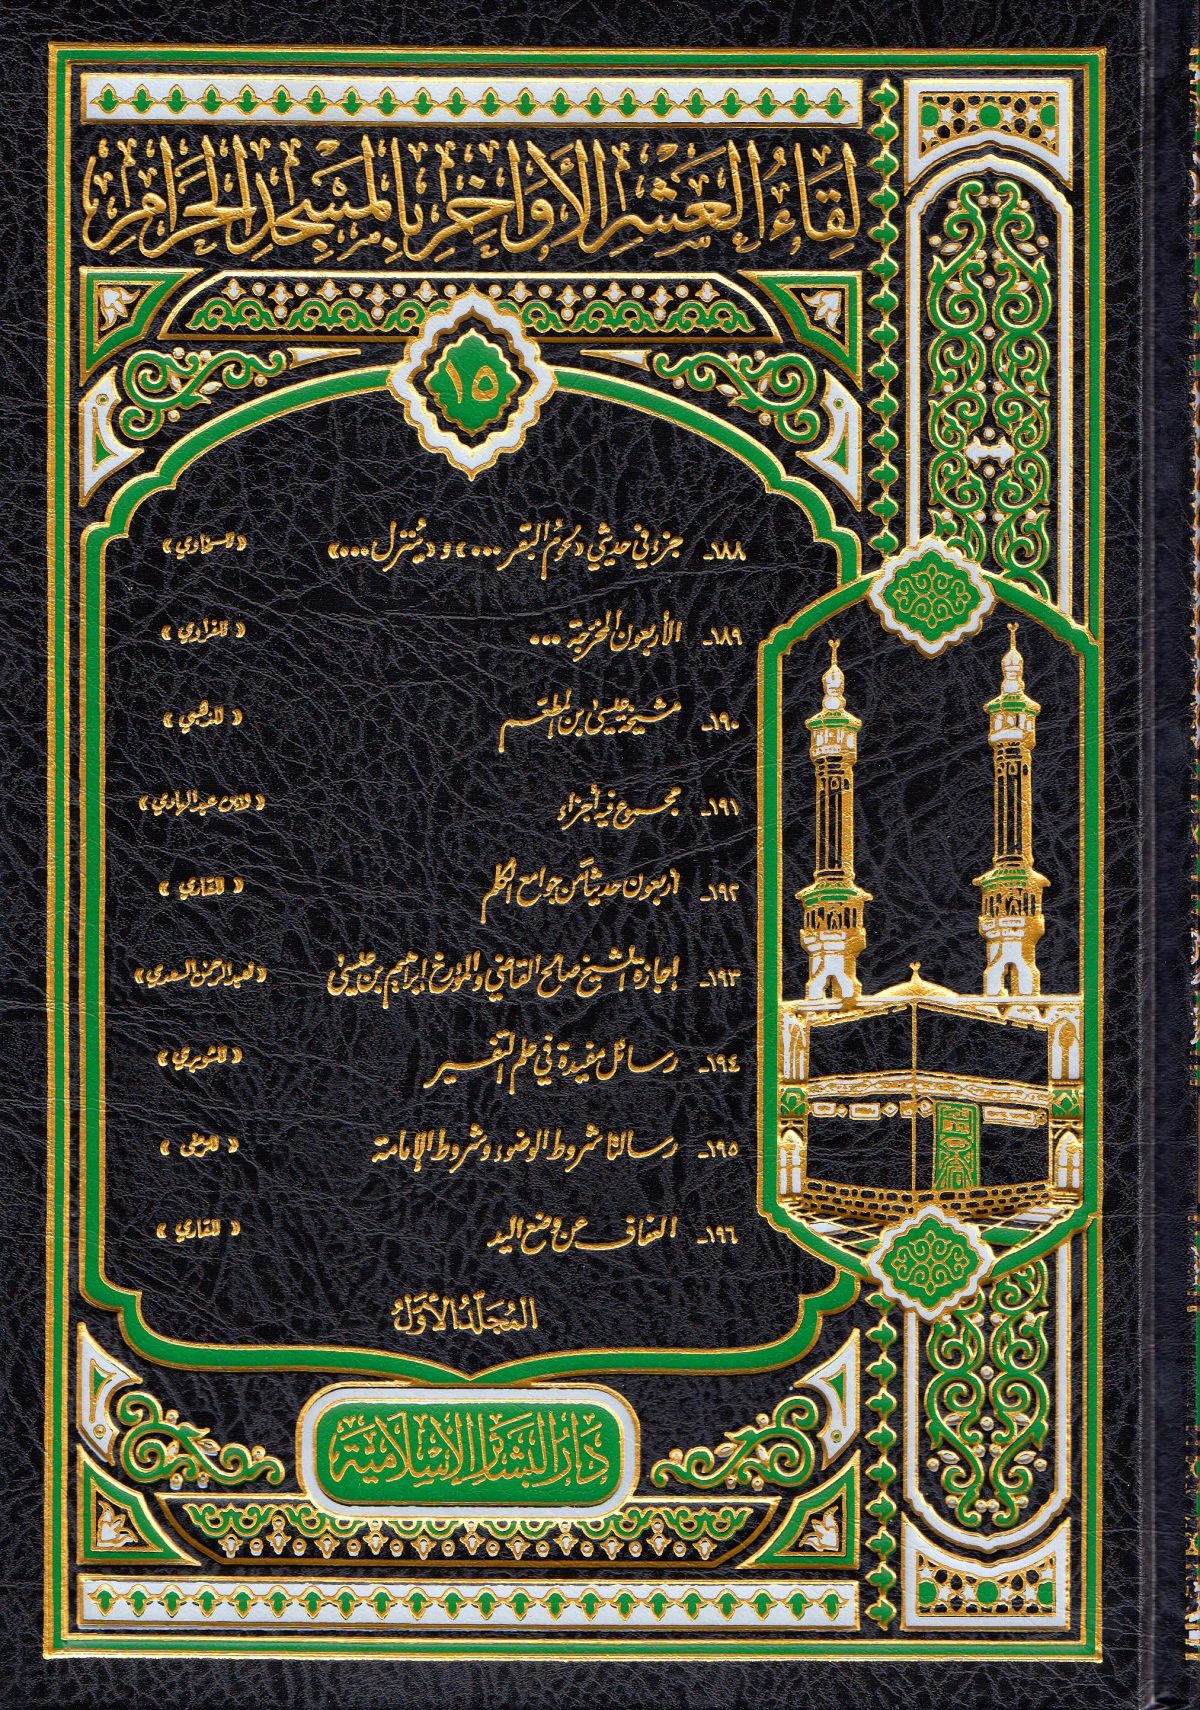 لِقَاءُ العَشْرِ الأَوَاخِرِ بِالمَسْجِدِ الحَرَامِ
١٥
١٨٨- جزء في حديثي «لحوم البقر ...» و«يُنزل ...» «للسخاوي»
١٨٩- الأربعون المخرجة ... «للفراوي»
١٩٠- مشيخة عيسى بن المطعم «للذهبي»
١٩١- مجموع فيه أجزاء «لابن عبد الهادي»
١٩٢- أربعون حديثاً من جوامع الكلم «للقاري»
١٩٣- إجازة الشيخ صالح القاضي والمؤرخ إبراهيم بن عيسى «لعبد الرحمن السعدي»
١٩٤- رسائل مفيدة في علم التفسير
١٩٥- رسالتا شروط الوضوء وشروط الإمامة «للرملي»
١٩٦- الشفاف عن وضع اليد «للقاري»
المُجَلَّدُ الأَوَّلُ
دَارُ البَشَائِرِ الإِسْلَامِيَّة